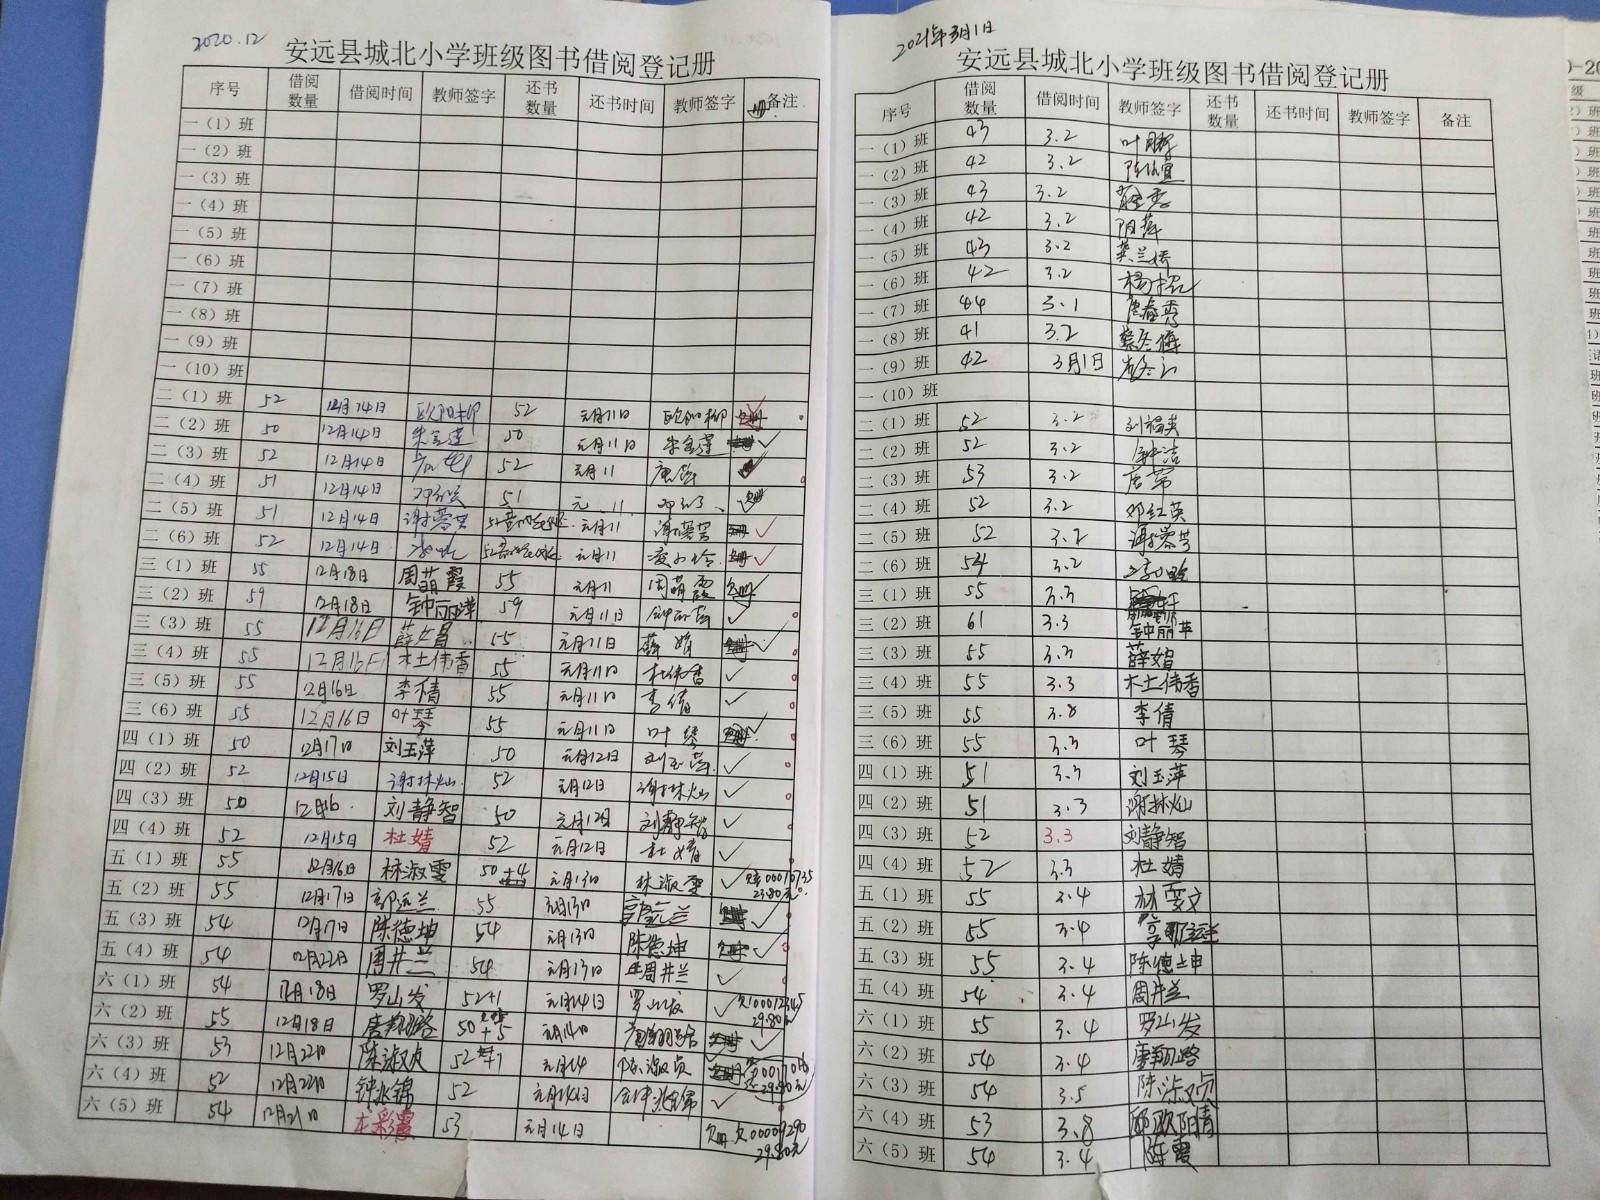 2020.12
安远县城北小学班级图书借阅登记册
序号 借阅数量 借阅时间 教师签字 还书数量 还书时间 教师签字 备注
一（1）班
一（2）班
一（3）班
一（4）班
一（5）班
一（6）班
一（7）班
一（8）班
一（9）班
一（10）班
二（1）班 52 12月14日 欧阳柳 52 元月11日 欧阳柳
二（2）班 50 12月14日 朱金莲 50 元月11日 朱金莲 ✓
二（3）班 52 12月14日 52 元月11 ✓
二（4）班 51 12月14日 51 元.11
二（5）班 51 12月14日 谢蓉芳 元月11 谢蓉芳 ✓
二（6）班 52 12月14日 元月11 ✓
三（1）班 55 12月18日 周萌霞 55 元月11 周萌霞 欠册
三（2）班 59 12月18日 钟丽萍 59 元月11日 ✓
三（3）班 55 12月16日 薛婧 55 元月11日 ✓
三（4）班 55 12月16日 杜伟香 55 元月11日 杜伟香 ✓
三（5）班 55 12月16日 李倩 55 元月11日 李倩 ✓
三（6）班 55 12月16日 叶琴 55 元月11日 叶琴 ✓
四（1）班 50 12月17日 刘玉萍 50 元月12日 刘玉萍 ✓
四（2）班 52 12月15日 谢林灿 52 元月12日 谢林灿 ✓
四（3）班 50 12月16 刘静智 50 元月12日 刘静智 ✓
四（4）班 52 12月15日 杜婧 52 元月12日 杜婧 ✓
五（1）班 55 12月16日 林淑雯 50+4 元月13日 林淑雯 ✓ 23.80元
五（2）班 55 12月17日 郭远兰 55 元月13日 ✓
五（3）班 54 12月17日 陈德坤 54 元月13日 陈德坤 ✓
五（4）班 54 12月22日 周井兰 54 元月13日 周井兰 ✓
六（1）班 54 12月18日 罗山发 52+1 元月14日 罗山发 ✓ 欠00012345 29.80元
六（2）班 55 12月18日 唐翔路 50+5 元月14日 唐翔路 ✓
六（3）班 53 12月22日 陈淑贞 52 元月14 陈淑贞 29.80元
六（4）班 52 12月22日 钟兆锦 52 元月14日 钟兆锦 ✓
六（5）班 54 12月21日 53 元月14日 欠册 欠00009290 29.80元
2021年3月1日
安远县城北小学班级图书借阅登记册
序号 借阅数量 借阅时间 教师签字 还书数量 还书时间 教师签字 备注
一（1）班 43 3.2 叶鹏辉
一（2）班 42 3.2
一（3）班 43 3.2
一（4）班 42 3.2 阳萍
一（5）班 43 3.2 龚兰娇
一（6）班 42 3.2
一（7）班 44 3.1 唐春秀
一（8）班 41 3.2 蔡冬梅
一（9）班 42 3月1日
一（10）班
二（1）班 52 3.2 刘福英
二（2）班 52 3.2 钟洁
二（3）班 53 3.2
二（4）班 52 3.2 邓红英
二（5）班 52 3.2 谢蓉芳
二（6）班 54 3.2
三（1）班 55 3.3
三（2）班 61 3.3 钟丽萍
三（3）班 55 3.3 薛婧
三（4）班 55 3.3 杜伟香
三（5）班 55 3.8 李倩
三（6）班 55 3.3 叶琴
四（1）班 51 3.3 刘玉萍
四（2）班 51 3.3 谢林灿
四（3）班 52 3.3 刘静智
四（4）班 52 3.3 杜婧
五（1）班 55 3.4 林雯文
五（2）班 55 3.4
五（3）班 55 3.4 陈德坤
五（4）班 54 3.4 周井兰
六（1）班 55 3.4 罗山发
六（2）班 54 3.4 唐翔路
六（3）班 54 3.5 陈淑贞
六（4）班 53 3.8 欧阳晴
六（5）班 54 3.4 陈霞